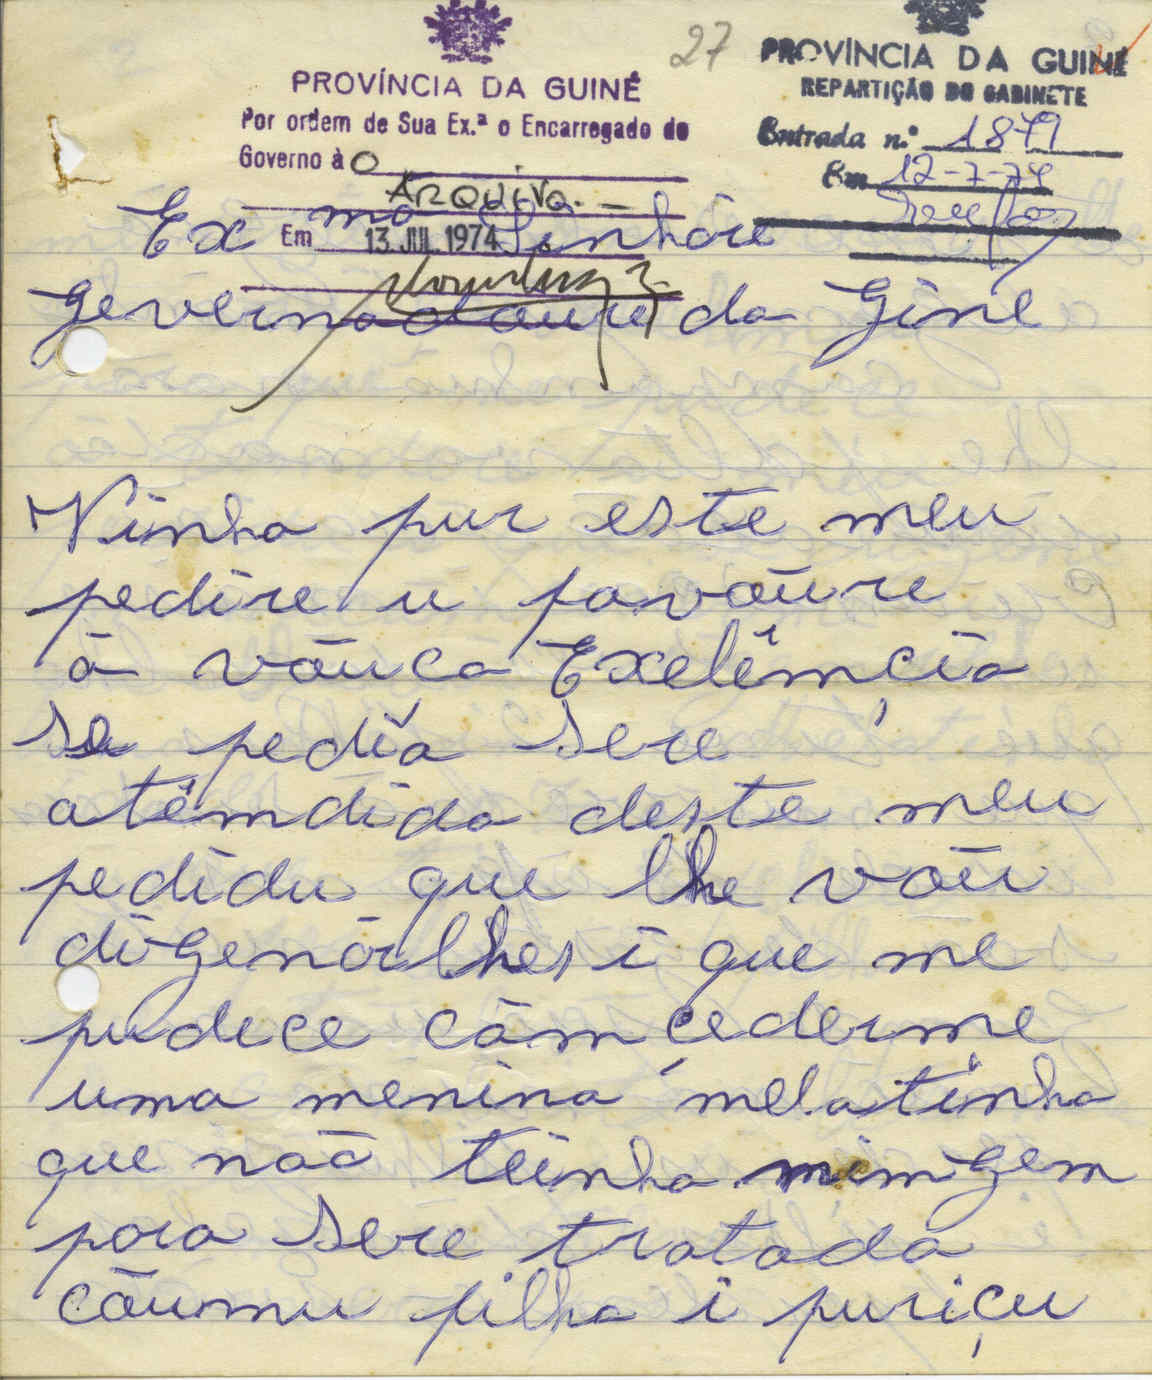 27
PROVÍNCIA DA GUINÉ
Por ordem de Sua Ex.ª o Encarregado do
Governo à O
ARQUIVO.—
Em 13 JUL. 1974
PROVÍNCIA DA GUINÉ
REPARTIÇÃO DO GABINETE
Entrada n.º 1879
Em 12-7-74
Ex mo Sinhôre
Gevernadoure da Gine
Vinha pur este meu
pedire u favoure
à vouca Exelêmçia
se pedia sere
atêmdida deste meu
pedidu que lhe vou
digenarlhes i que me
pudece comçederme
uma menina melatinha
que não teinha mimgem
para sere tratada
coumu filha i puriçu